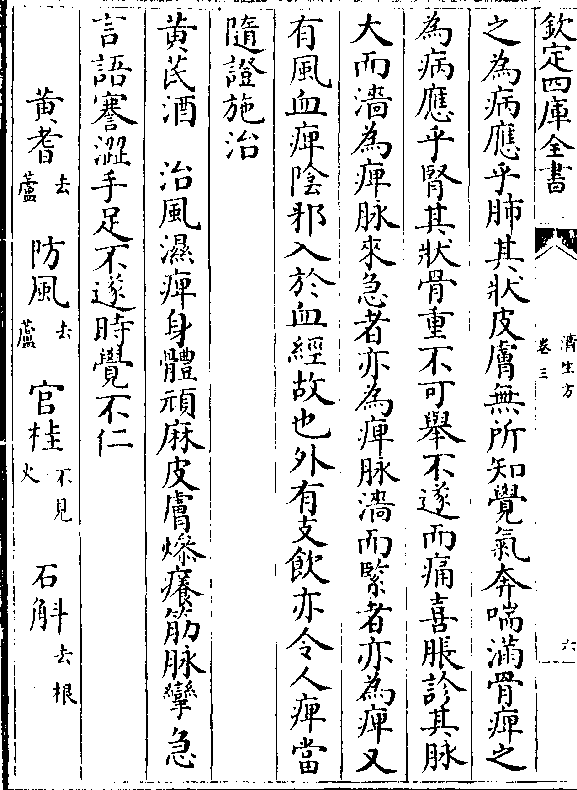 欽定四庫全書
濟生方
卷三
六
之為病應乎肺其狀皮膚無所知覺氣奔喘滿骨痺之
為病應乎腎其狀骨重不可舉不遂而痛喜脹診其脉
大而濇為痺脉來急者亦為痺脉濇而緊者亦為痺又
有風血痺隂邪入於血經故也外有支飲亦令人痺當
隨證施治
黄芪酒　治風濕痺身體頑麻皮膚㿋癢筋脉攣急
言語謇澀手足不遂時覺不仁
黄耆去蘆　防風去蘆　官桂不見火　石斛去根